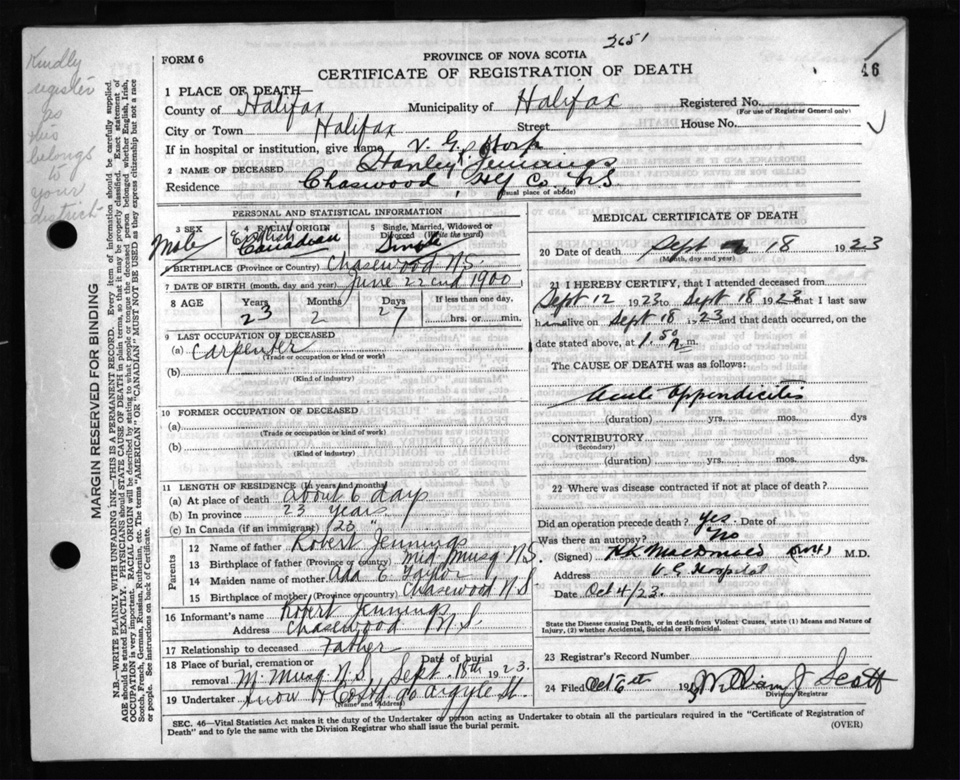 2651
FORM 6
PROVINCE OF NOVA SCOTIA
CERTIFICATE OF REGISTRATION OF DEATH
46
Kindly register as this belongs to your district
MARGIN RESERVED FOR BINDING
N.B.—WRITE PLAINLY WITH UNFADING INK—THIS IS A PERMANENT RECORD. Every item of information should be carefully supplied.
AGE should be stated EXACTLY. PHYSICIANS should STATE CAUSE OF DEATH in plain terms, so that it may be properly classified. Exact statement of
OCCUPATION is very important. RACIAL ORIGIN will be described by stating to what people or tongue the deceased person belonged whether English, Irish,
Scotch, French, German, Russian, Ruthenian, etc. The terms "AMERICAN" or "CANADIAN" MUST NOT BE USED as they express citizenship but not a race
or people. See instructions on back of Certificate.
1 PLACE OF DEATH—
County of Halifax Municipality of Halifax Registered No.
(For use of Registrar General only)
City or Town Halifax Street House No.
If in hospital or institution, give name V. G. Hosp
2 NAME OF DECEASED Stanley R. Jennings
Residence Chaswood, Hfx Co. N.S.
(Usual place of abode)
PERSONAL AND STATISTICAL INFORMATION
3 SEX Male
4 RACIAL ORIGIN English Canadian
5 Single, Married, Widowed or Divorced (Write the word) Single
6 BIRTHPLACE (Province or Country) Chasewood N.S.
7 DATE OF BIRTH (month, day, and year) June 22nd 1900
8 AGE Years 23 Months 2 Days 27 If less than one day,
hrs. or min.
9 LAST OCCUPATION OF DECEASED
(a) Carpenter
(Trade or occupation or kind of work)
(b)
(Kind of industry)
10 FORMER OCCUPATION OF DECEASED
(a)
(Trade or occupation or kind of work)
(b)
(Kind of industry)
11 LENGTH OF RESIDENCE (In years and months)
(a) At place of death about 6 days
(b) In province 23 years
(c) In Canada (if an immigrant) 23 "
Parents
12 Name of father Robert Jennings
13 Birthplace of father (Province or country) Mid Musq N.S.
14 Maiden name of mother Ada E. Taylor
15 Birthplace of mother (Province or country) Chasewood N.S
16 Informant's name Robert Jennings
Address Chasewood N.S.
17 Relationship to deceased Father
18 Place of burial, cremation or removal M. Musq N.S. Date of burial Sept. 18th 1923.
19 Undertaker Snow & Co Ltd 90 Argyle St.
(Name and Address)
MEDICAL CERTIFICATE OF DEATH
20 Date of death Sept 18 1923
(Month, day and year)
21 I HEREBY CERTIFY, that I attended deceased from
Sept 12 1923 to Sept 18 1923 that I last saw
him alive on Sept 18 1923 and that death occurred, on
date stated above, at 1.50 A. m.
The CAUSE OF DEATH was as follows:
Acute Appendicitis
(duration) yrs. mos. dys
CONTRIBUTORY
(Secondary)
(duration) yrs. mos. dys.
22 Where was disease contracted if not at place of death?
Did an operation precede death? Yes. Date of
Was there an autopsy? No
(Signed) MacDonald M.D.
Address V. G. Hospital
Date Oct 4/23.
State the Disease causing Death, or in death from Violent Causes, state (1) Means and Nature of
Injury, (2) whether Accidental, Suicidal or Homicidal.
23 Registrar's Record Number
24 Filed Oct 6th 1923 William J Scott
Division Registrar
SEC. 46—Vital Statistics Act makes it the duty of the Undertaker or person acting as Undertaker to obtain all the particulars required in the "Certificate of Registration of
Death" and to fyle the same with the Division Registrar who shall issue the burial permit. (OVER)